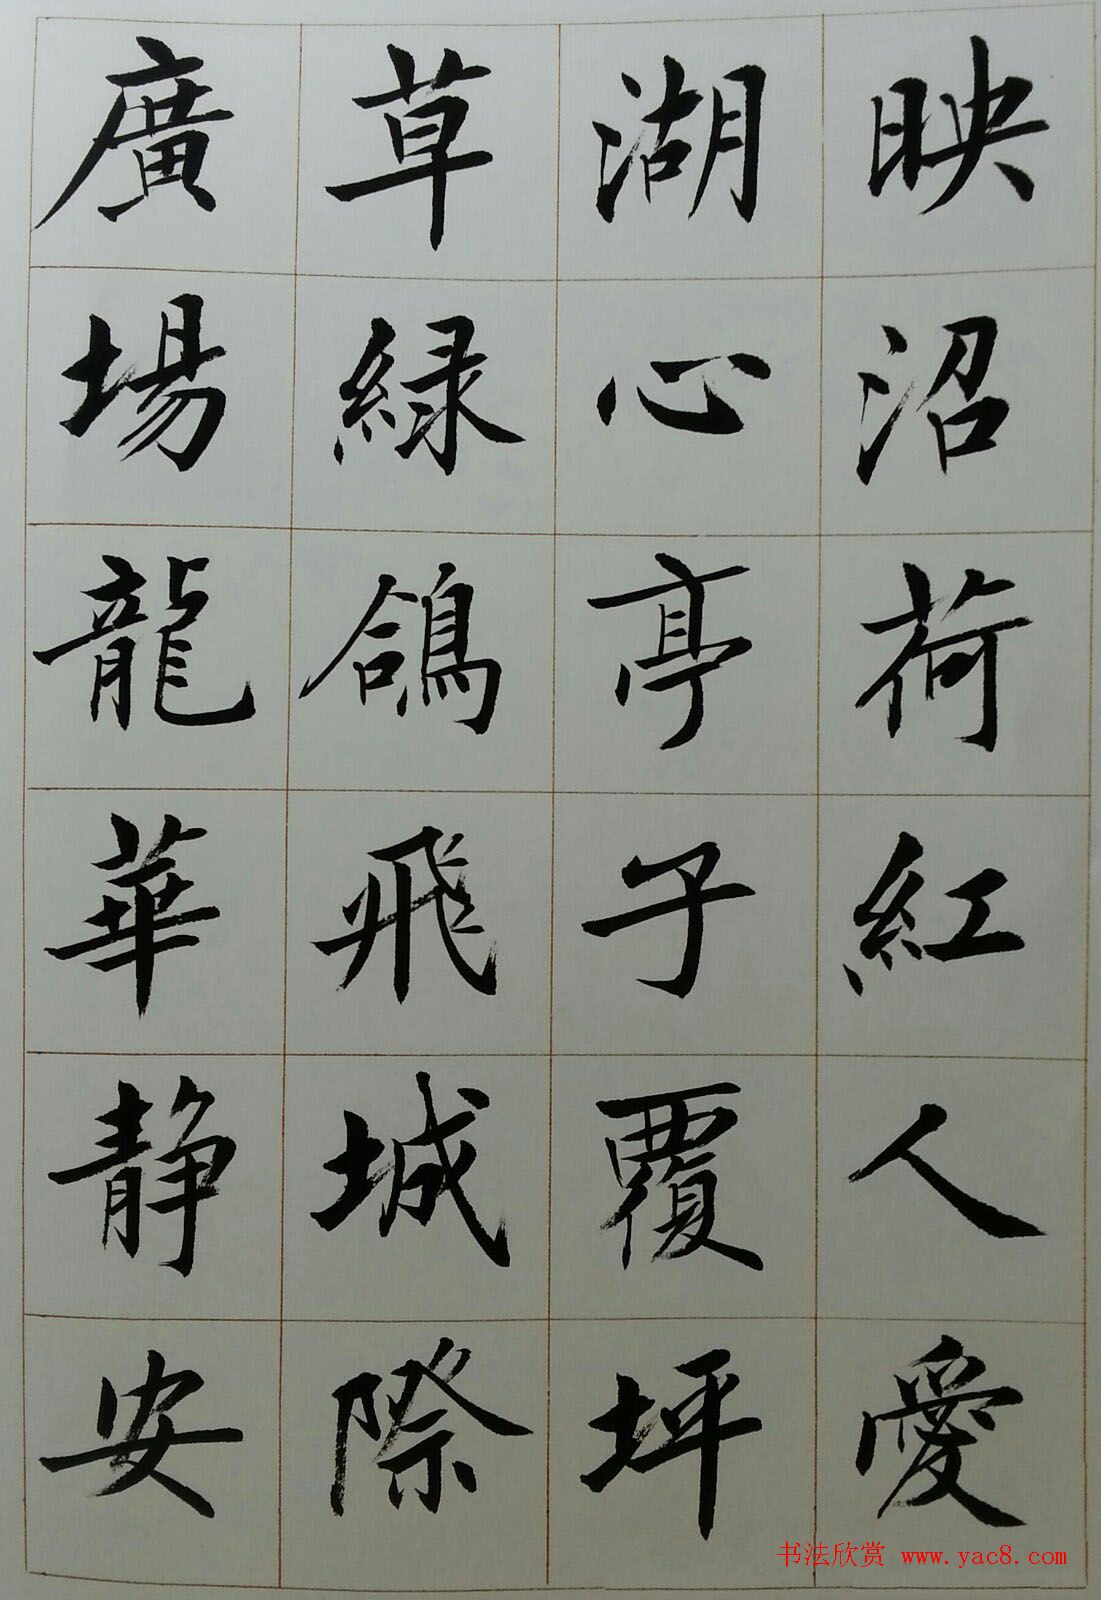 映沼荷紅人愛
湖心亭子覆坪
草緑鴿飛城際
廣場龍華静安
书法欣赏 www.yac8.com